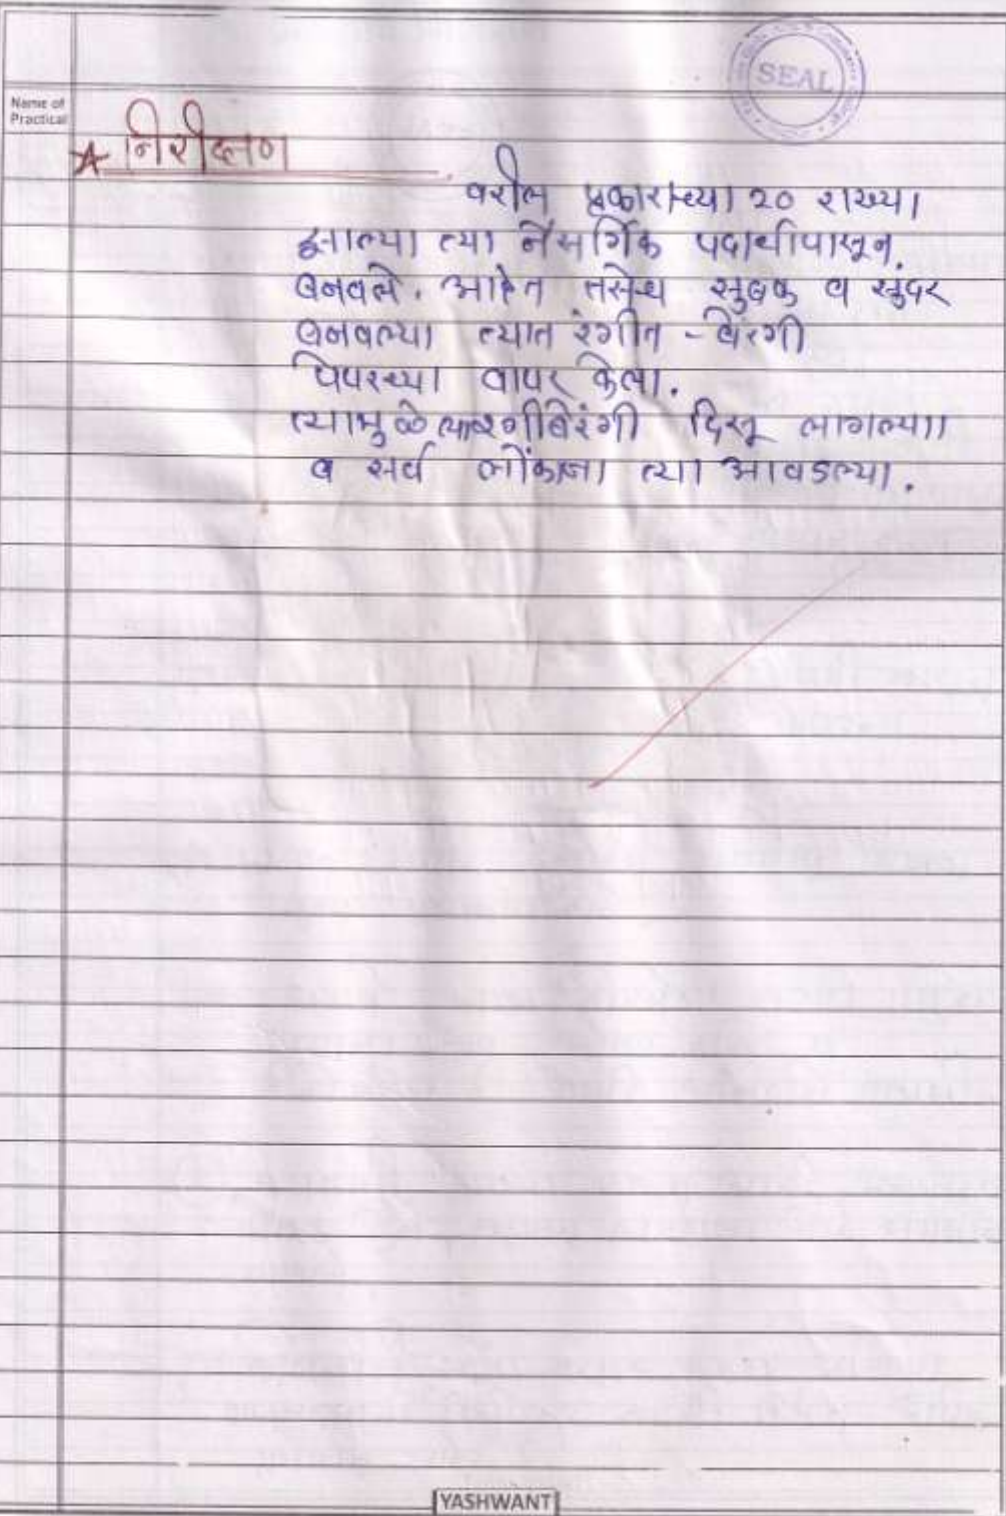 SEAL
Name of
Practical
★ निरीक्षण
वरील प्रकारच्या २० राख्या
झाल्या त्या नैसर्गिक पदार्थापासून
बनवले. आहेत तसेच सुबक व सुंदर
बनवल्या त्यात रंगीत - बेरंगी
पेपरच्या वापर केला.
त्यामुळे त्या रंगीबेरंगी दिसू लागल्या
व सर्व लोंकाना त्या आवडल्या.
YASHWANT